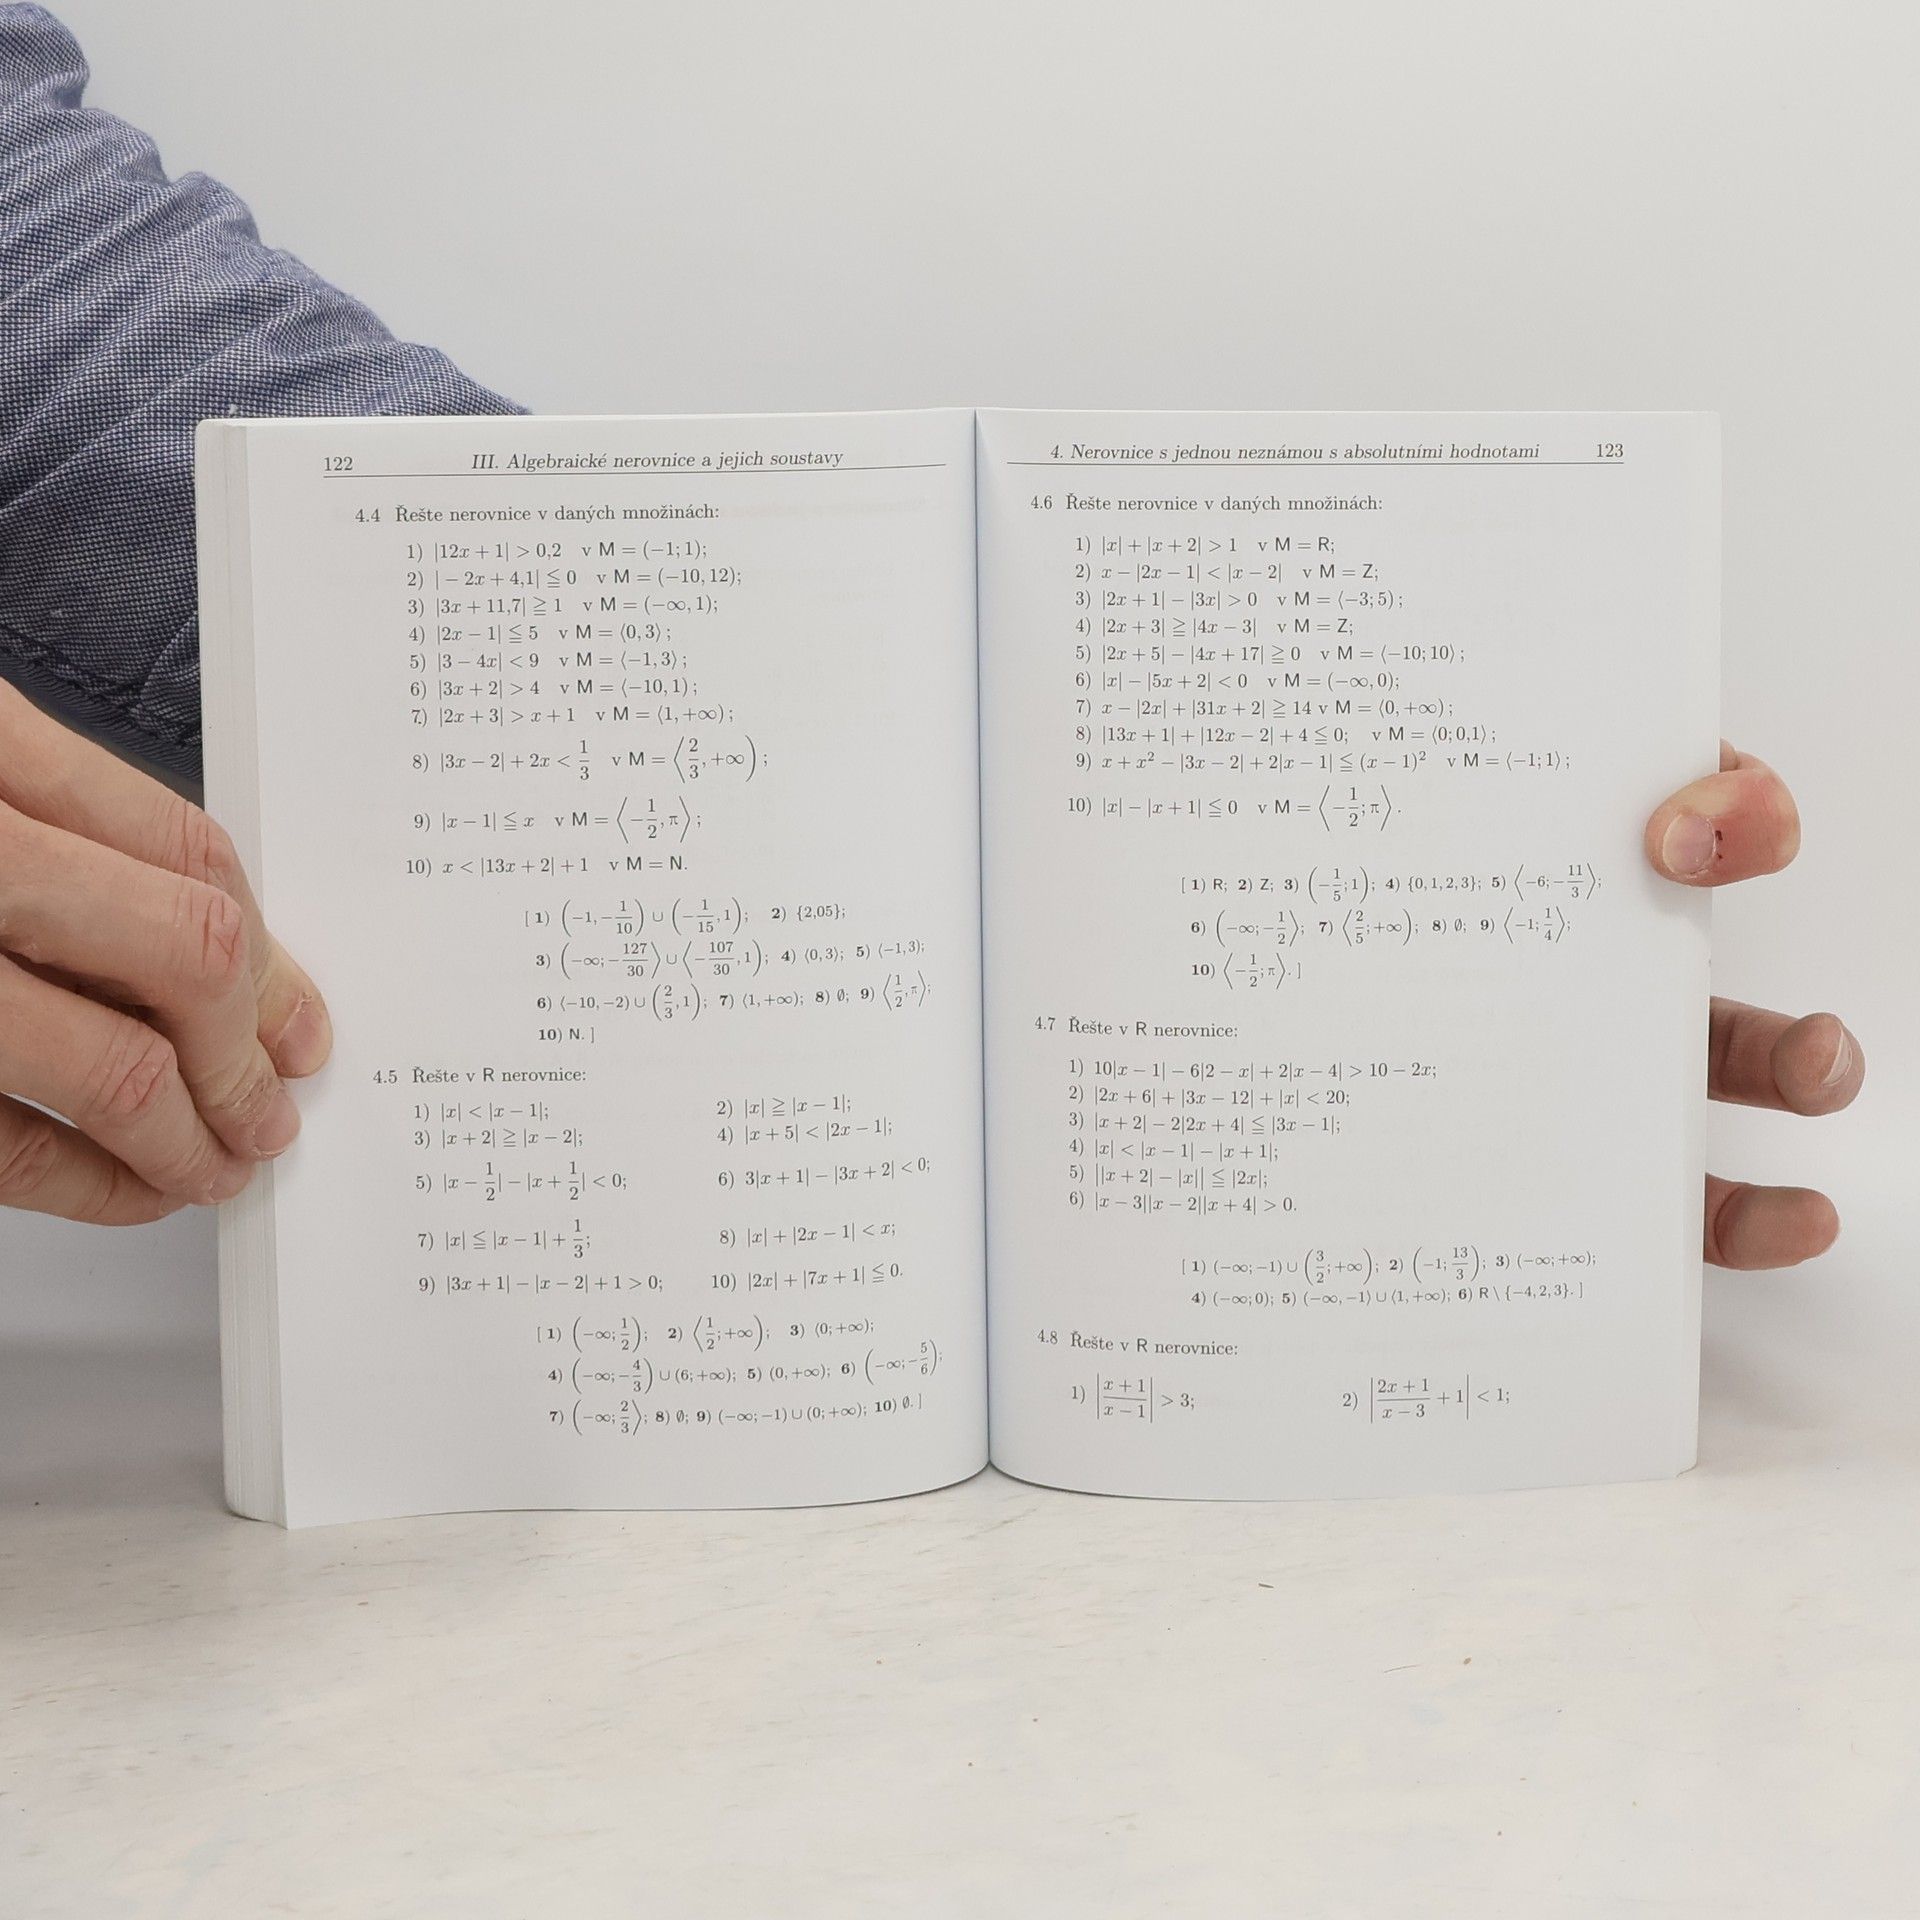 122 III. Algebraické nerovnice a jejich soustavy
4.4 Řešte nerovnice v daných množinách:
1) |12x + 1| > 0,2 v M = (−1; 1);
2) | − 2x + 4,1| ≦ 0 v M = (−10, 12);
3) |3x + 11,7| ≧ 1 v M = (−∞, 1);
4) |2x − 1| ≦ 5 v M = ⟨0, 3⟩;
5) |3 − 4x| < 9 v M = ⟨−1, 3⟩;
6) |3x + 2| > 4 v M = ⟨−10, 1);
7) |2x + 3| > x + 1 v M = ⟨1, +∞);
8) |3x − 2| + 2x < 1/3 v M = ⟨2/3, +∞);
9) |x − 1| ≦ x v M = ⟨−1/2, π⟩;
10) x < |13x + 2| + 1 v M = N.
[ 1) (−1, −1/10) ∪ (−1/15, 1); 2) {2,05};
3) (−∞; −127/30⟩ ∪ ⟨−107/30, 1); 4) ⟨0, 3⟩; 5) ⟨−1, 3);
6) ⟨−10, −2) ∪ (2/3, 1); 7) ⟨1, +∞); 8) ∅; 9) ⟨1/2, π⟩;
10) N. ]
4.5 Řešte v R nerovnice:
1) |x| < |x − 1|; 2) |x| ≧ |x − 1|;
3) |x + 2| ≧ |x − 2|; 4) |x + 5| < |2x − 1|;
5) |x − 1/2| − |x + 1/2| < 0; 6) 3|x + 1| − |3x + 2| < 0;
7) |x| ≦ |x − 1| + 1/3; 8) |x| + |2x − 1| < x;
9) |3x + 1| − |x − 2| + 1 > 0; 10) |2x| + |7x + 1| ≦ 0.
[ 1) (−∞; 1/2); 2) ⟨1/2; +∞); 3) ⟨0; +∞);
4) (−∞; −4/3) ∪ (6; +∞); 5) (0, +∞); 6) (−∞; −5/6);
7) (−∞; 2/3⟩; 8) ∅; 9) (−∞; −1) ∪ (0; +∞); 10) ∅. ]
4. Nerovnice s jednou neznámou s absolutními hodnotami 123
4.6 Řešte nerovnice v daných množinách:
1) |x| + |x + 2| > 1 v M = R;
2) x − |2x − 1| < |x − 2| v M = Z;
3) |2x + 1| − |3x| > 0 v M = ⟨−3; 5);
4) |2x + 3| ≧ |4x − 3| v M = Z;
5) |2x + 5| − |4x + 17| ≧ 0 v M = ⟨−10; 10⟩;
6) |x| − |5x + 2| < 0 v M = (−∞, 0);
7) x − |2x| + |31x + 2| ≧ 14 v M = ⟨0, +∞);
8) |13x + 1| + |12x − 2| + 4 ≦ 0; v M = ⟨0; 0,1⟩;
9) x + x² − |3x − 2| + 2|x − 1| ≦ (x − 1)² v M = ⟨−1; 1⟩;
10) |x| − |x + 1| ≦ 0 v M = ⟨−1/2; π⟩.
[ 1) R; 2) Z; 3) (−1/5; 1); 4) {0, 1, 2, 3}; 5) ⟨−6; −11/3⟩;
6) (−∞; −1/2⟩; 7) ⟨2/5; +∞); 8) ∅; 9) ⟨−1; 1/4⟩;
10) ⟨−1/2; π⟩. ]
4.7 Řešte v R nerovnice:
1) 10|x − 1| − 6|2 − x| + 2|x − 4| > 10 − 2x;
2) |2x + 6| + |3x − 12| + |x| < 20;
3) |x + 2| − 2|2x + 4| ≦ |3x − 1|;
4) |x| < |x − 1| − |x + 1|;
5) ||x + 2| − |x|| ≦ |2x|;
6) |x − 3||x − 2||x + 4| > 0.
[ 1) (−∞; −1) ∪ (3/2; +∞); 2) (−1; 13/3); 3) (−∞; +∞);
4) (−∞; 0); 5) (−∞, −1⟩ ∪ ⟨1, +∞); 6) R \ {−4, 2, 3}. ]
4.8 Řešte v R nerovnice:
1) |(x + 1)/(x − 1)| > 3; 2) |(2x + 1)/(x − 3) + 1| < 1;